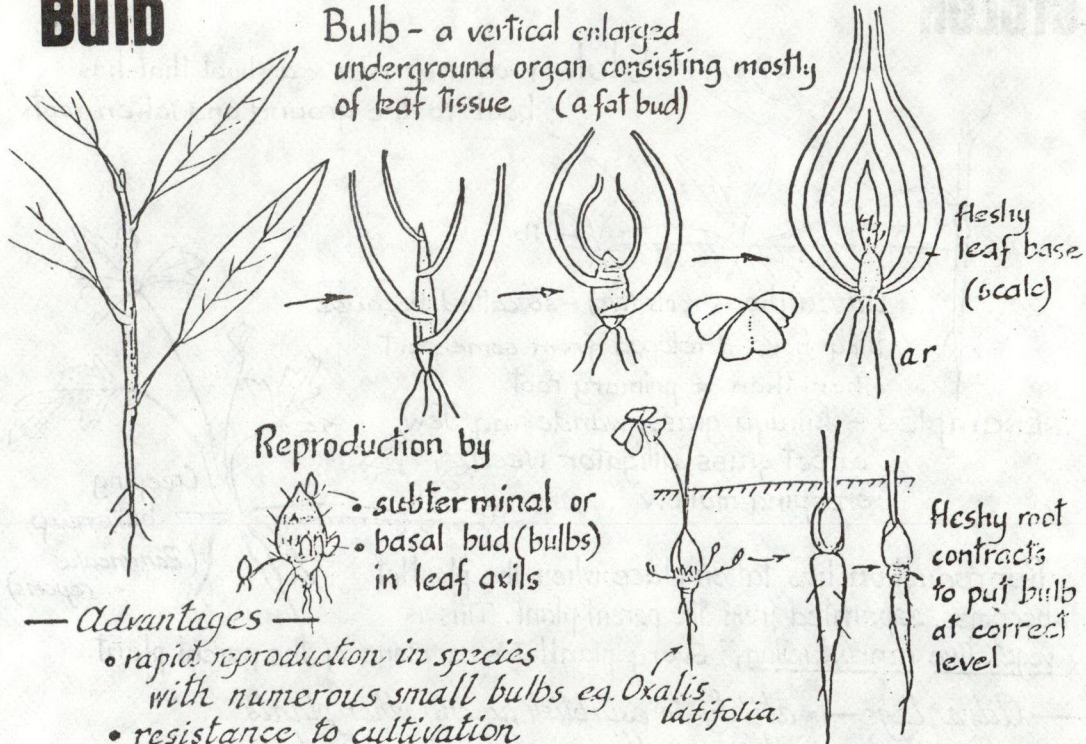 Bulb
Bulb - a vertical enlarged
underground organ consisting mostly
of leaf tissue (a fat bud)
fleshy
leaf base
(scale)
ar
Reproduction by
• subterminal or
• basal bud (bulbs)
in leaf axils
fleshy root
contracts
to put bulb
at correct
level
— Advantages —
• rapid reproduction in species
with numerous small bulbs eg. Oxalis
latifolia
• resistance to cultivation